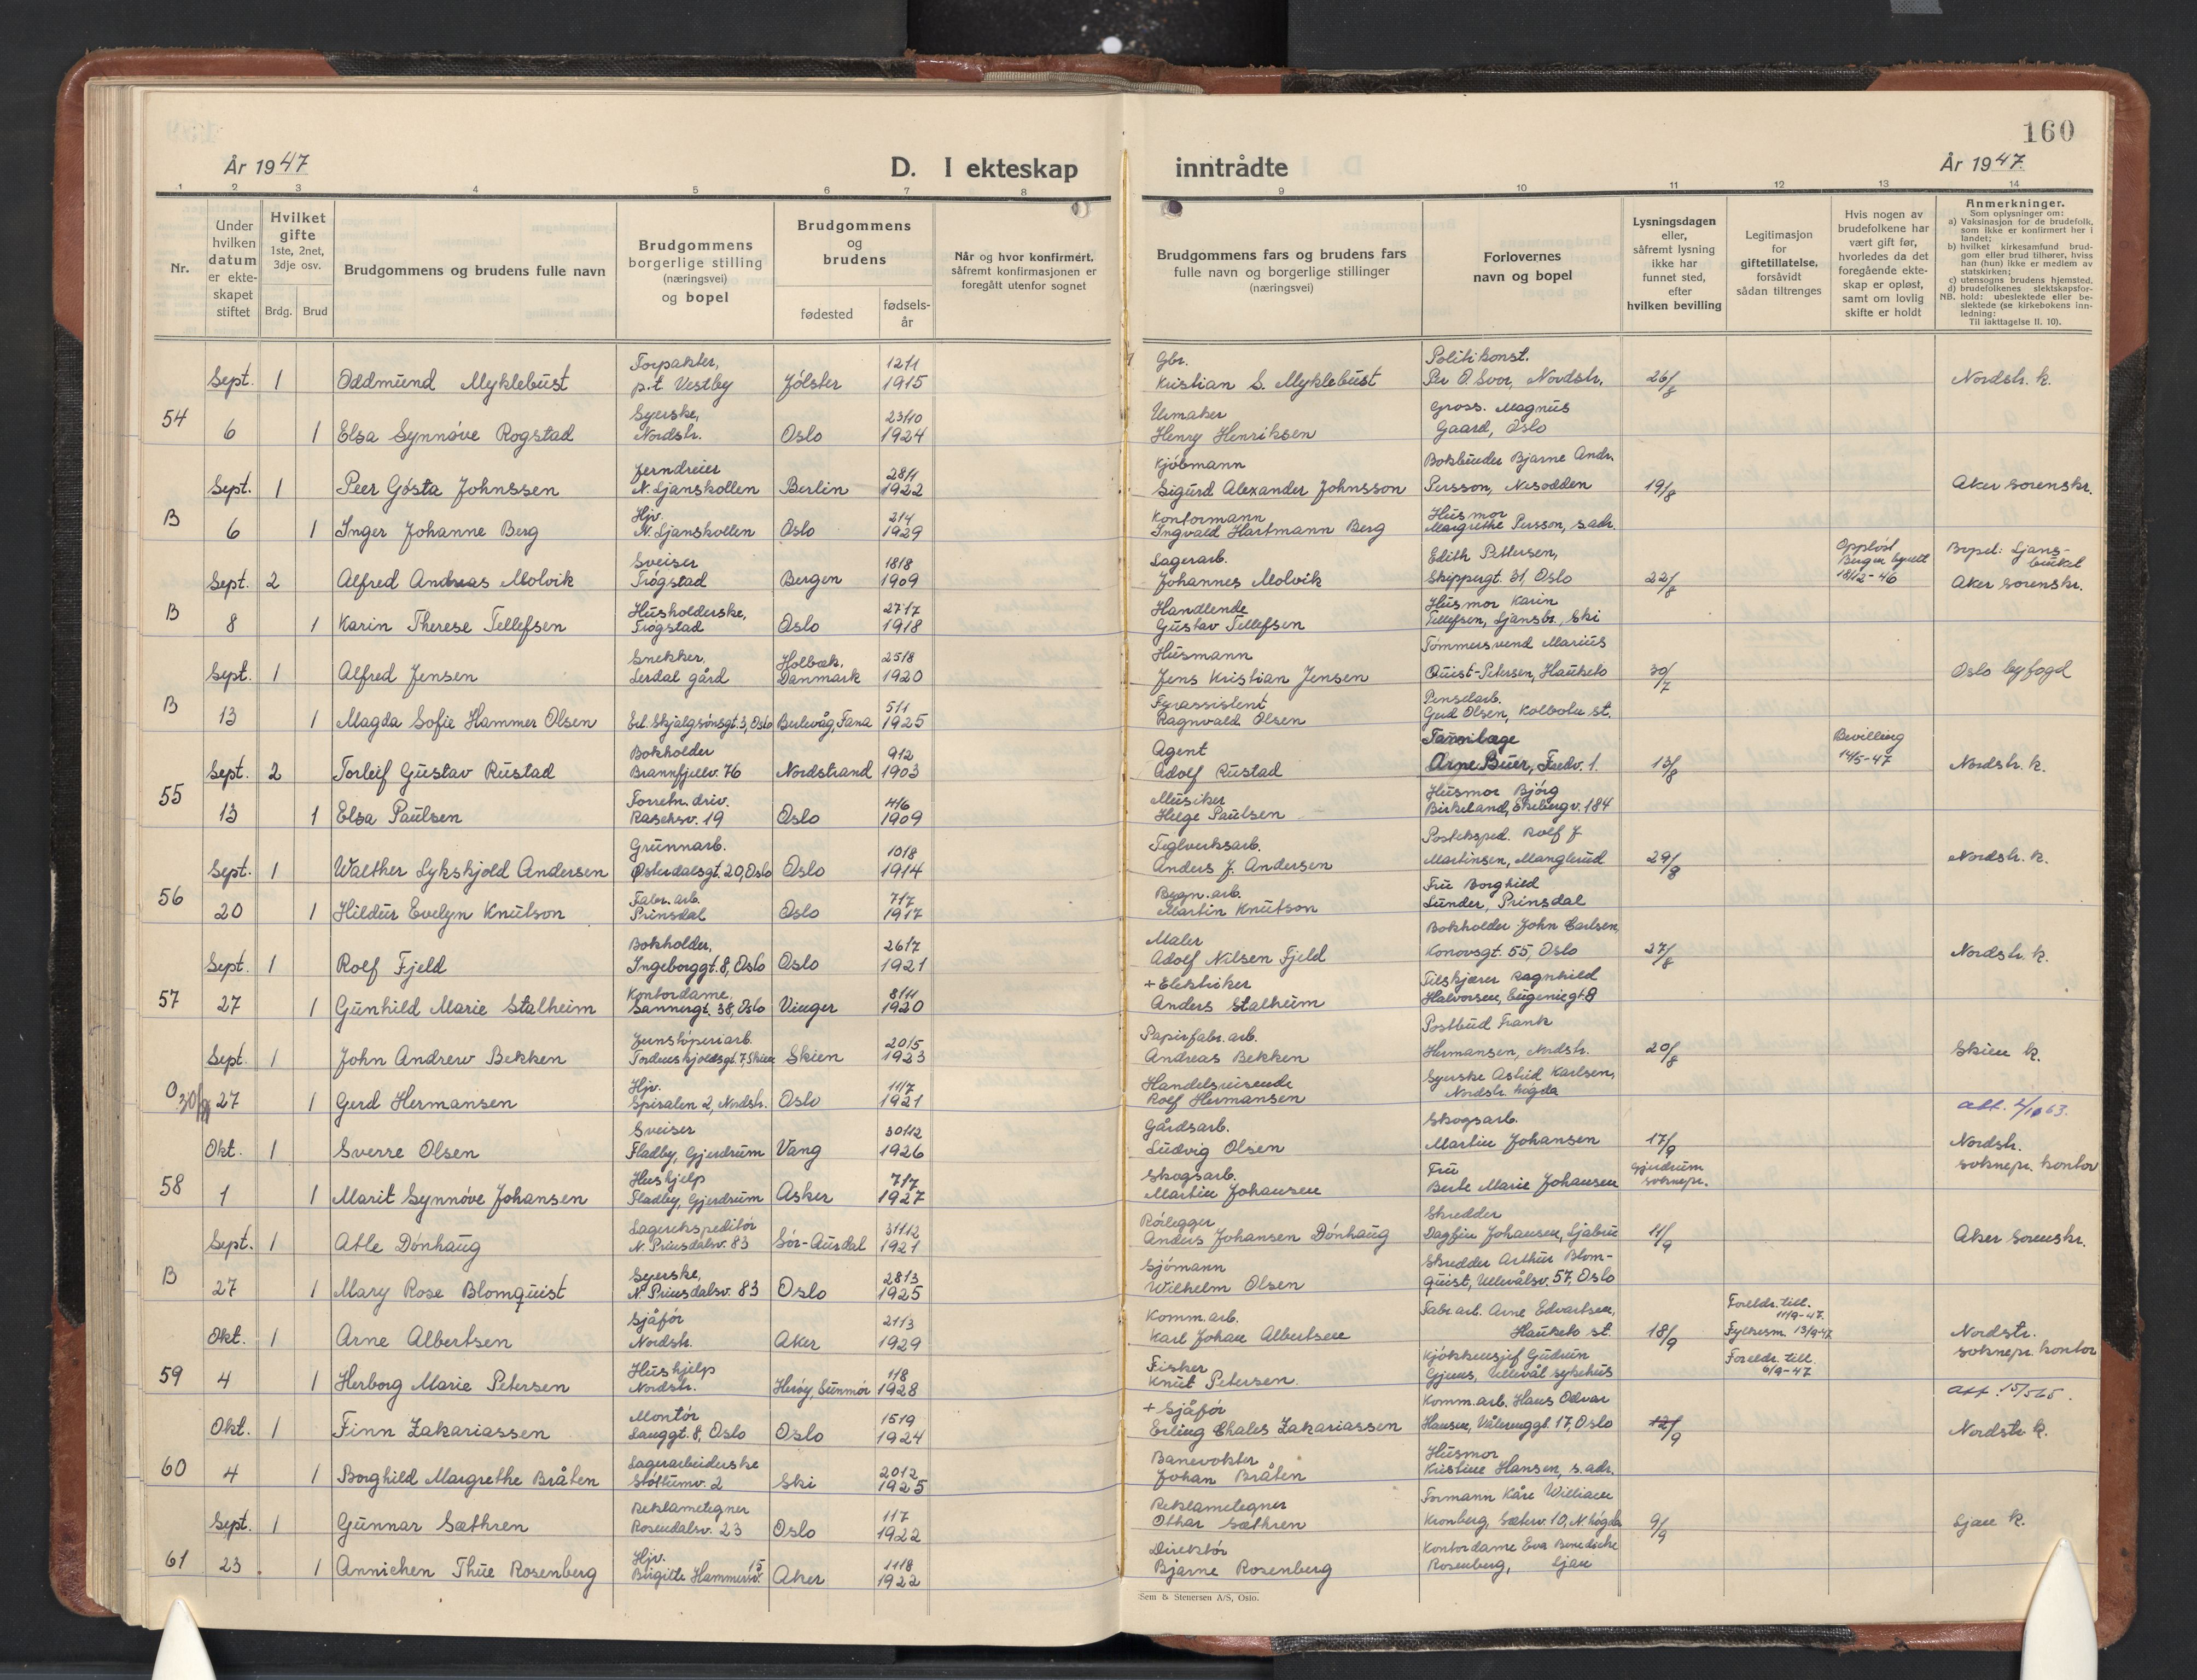 160
År 1947
D. I ekteskap inntrådte
År 1947
1 2 3 4 5 6 7 8 9 10 11 12 13 14
Nr.
Under hvilken datum er ekteskapet stiftet
Hvilket gifte 1ste, 2net, 3dje osv.
Brdg. Brud
Brudgommens og brudens fulle navn
Brudgommens borgerlige stilling (næringsvei) og bopel
Brudgommens og brudens
fødested
fødselsår
Når og hvor konfirmert, såfremt konfirmasjonen er foregått utenfor sognet
Brudgommens fars og brudens fars fulle navn og borgerlige stillinger (næringsvei)
Forlovernes navn og bopel
Lysningsdagen eller, såfremt lysning ikke har funnet sted, efter hvilken bevilling
Legitimasjon for giftetillatelse, forsåvidt sådan tiltrenges
Hvis nogen av brudefolkene har vært gift før, hvorledes da det foregående ekteskap er opløst, samt om lovlig skifte er holdt
Anmerkninger.
Som oplysninger om:
a) Vaksinasjon for de brudefolk, som ikke er konfirmert her i landet;
b) hvilket kirkesamfund brudgom eller brud tilhører, hviss han (hun) ikke er medlem av statskirken;
c) utensogns brudens hjemsted.
d) brudefolkenes slektskapsforhold: ubeslektede eller beslektede (se kirkebokens innledning:
NB. Til iakttagelse II. 10).
54 Sept. 1 Oddmund Myklebust Torpakter, p.t. Vestby Jølster 12/11 1915 Gbr. Kristian S. Myklebust Politikonst. Per O. Svor, Nordstr. 26/8 Nordstr. k.
6 1 Elsa Synnøve Rogstad Syerske, Nordstr. Oslo 23/10 1924 Urmaker Henry Henriksen Gross. Magnus Gaard, Oslo
B Sept. 1 Peer Gøsta Johnssen Jerndreier N. Ljanskollen Berlin 28/1 1922 Kjøbmann Sigurd Alexander Johnsson Bokbinder Bjarne Andr. Persson, Nesodden 19/8 Aker sorenskr.
6 1 Inger Johanne Berg Hjv. N. Ljanskollen Oslo 2/4 1929 Kontormann Ingvald Hartmann Berg Husmor Margrethe Persson, s.adr.
B Sept. 2 Alfred Andreas Molvik Sveiser Trøgstad Bergen 18/8 1909 Lagerarb. Johannes Molvik Edith Pettersen, Skippergt. 31, Oslo 22/8 Oppløst Bergen byrett 18/12-46 Bopel: Ljansbruket Aker sorenskr.
8 1 Karin Therese Tellefsen Husholderske, Trøgstad Oslo 27/7 1918 Handlende Gustav Tellefsen Husmor Karin Tellefsen, Ljansbr., Ski
B Sept. 1 Alfred Jensen Snekker, Lerdal gård Holbæk, Danmark 25/8 1920 Husmann Jens Kristian Jensen Tømmersvend Marius Quist-Petersen, Hauketo 30/7 Oslo byfogd
13 1 Magda Sofie Hammer Olsen Erl. Skjalgsønsgt. 3, Oslo Berlevåg, Fana 5/1 1925 Fyrassistent Ragnvald Olsen Penselarb. Gerd Olsen, Kolbotn st.
55 Sept. 2 Torleif Gustav Rustad Bokholder Brannfjellv. 76 Nordstrand 9/2 1903 Agent Adolf Rustad Tannlæge Arne Buer, Fredv. 1. 13/8 Bevilling 14/5-47 Nordstr. k.
13 1 Elsa Paulsen Forretn. driv. Raschsv. 19 Oslo 4/6 1909 Musiker Helge Paulsen Husmor Bjørg Birkeland, Ekebergv. 184
56 Sept. 1 Walther Lykskjold Andersen Grunnarb. Østerdalsgt. 20, Oslo Oslo 10/8 1914 Teglverksarb. Anders J. Andersen Posteksped. Rolf J Martinsen, Manglerud 29/8 Nordstr. k.
20 1 Hildur Evelyn Knutson Fabr. arb. Prinsdal Oslo 7/7 1917 Bygn. arb. Martin Knutson Fru Borghild Lunder, Prinsdal
57 Sept. 1 Rolf Fjeld Bokholder, Ingeborggt. 8, Oslo Oslo 26/7 1921 Maler Adolf Nilsen Fjeld Bokholder John Carlsen, Konowsgt. 55, Oslo 27/8 Nordstr. k.
27 1 Gunhild Marie Stalheim Kontordame, Sannergt. 38, Oslo Vinger 8/11 1920 + Elektriker Anders Stalheim Tilskjærer Ragnhild Halvorsen, Eugeniegt. 8
O 30/9 Sept. 1 John Andrew Bekken Jernstøperiarb. Tordenskjoldsgt. 7, Skien Skien 20/5 1923 Papirfabr. arb. Andreas Bekken Postbud Frank Hermansen, Nordstr. 20/8 Skien k.
27 1 Gerd Hermansen Hjv. Spiralen 2, Nordstr. Oslo 11/7 1921 Handelsreisende Rolf Hermansen Syerske Astrid Karlsen, Nordstr. høgda
58 Okt. 1 Sverre Olsen Sveiser Fladby, Gjerdrum Vang 30/12 1926 Gårdsarb. Ludvig Olsen Skogsarb. Martin Johansen 17/9 Gjerdrum soknepr. Nordstr. soknepr. kontor
1 1 Marit Synnøve Johansen Hushjelp Fladby, Gjerdrum Asker 7/7 1927 Skogsarb. Martin Johansen Fru Berte Marie Johansen
B Sept. 1 Atle Dønhaug Lagerekspeditør N. Prinsdalsv. 83 Sør-Aurdal 31/12 1921 Rørlegger Anders Johansen Dønhaug Skredder Dagfin Johansen, Ljabru 11/9 Aker sorenskr.
27 1 Mary Rose Blomquist Syerske, N. Prinsdalsv. 83 Oslo 28/3 1925 Sjømann Wilhelm Olsen Skredder Arthur Blomquist, Ullevålsv. 57, Oslo
59 Okt. 1 Arne Albertsen Sjåfør Nordstr. Aker 21/3 1929 Komm. arb. Karl Johan Albertsen Fabr. arb. Arne Edvartsen, Hauketo st. 18/9 Foreldr. till. 11/9-47. Fylkesm. 13/9-47 Nordstr. soknepr. kontor
4 1 Herborg Marie Petersen Hushjelp Nordstr. Herøy, Sunmør 1/8 1928 Fisker Knut Petersen. Kjøkkensjef Gudrun Gjems, Ullevål sykehus Foreldr. till. 6/9-47
60 Okt. 1 Finn Zakariassen Montør Langgt. 8, Oslo Oslo 15/9 1924 + Sjåfør Erling Chales Zakariassen Komm. arb. Hans Odvar Hansen, Vålerenggt. 17, Oslo 12/9 Nordstr. k.
4 1 Borghild Margrethe Bråten Lagerarbeiderske Støttumv. 2 Ski 20/12 1925 Banevokter Johan Bråten Husmor Kristine Hansen, s. adr.
61 Sept. 1 Gunnar Sæthren Reklametegner Rosendalsv. 23 Oslo 1/7 1922 Reklametegner Othar Sæthren Formann Kåre William Kronberg, Sæterv. 10, N. høgda 9/9 Ljan k.
23 1 Annichen Thue Rosenberg Hjv. Birgitte Hammersv. 15 Aker 11/8 1922 Direktør Bjarne Rosenberg Kontordame Eva Benedicte Rosenberg, Ljan
Sem & Stenersen A/S, Oslo.